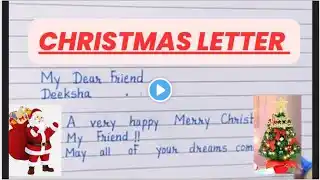 CHRISTMAS LETTER
My Dear Friend
Deeksha
A very happy Merry Christ
My Friend !!
May all of your dreams com